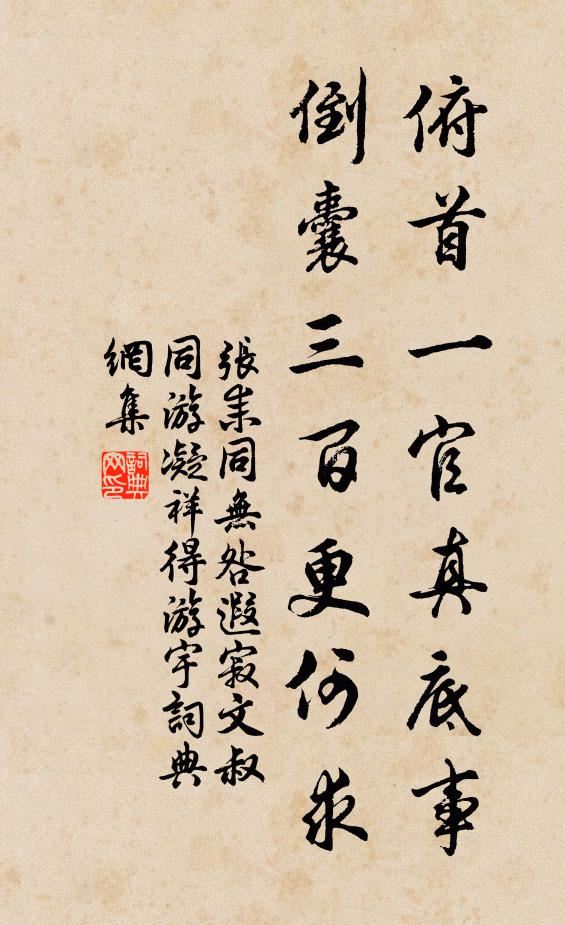 俯首一官真底事
倒囊三百更何求
張耒同無咎遐寂文叔
同游凝祥得游宇詞典
網集
詞典網印